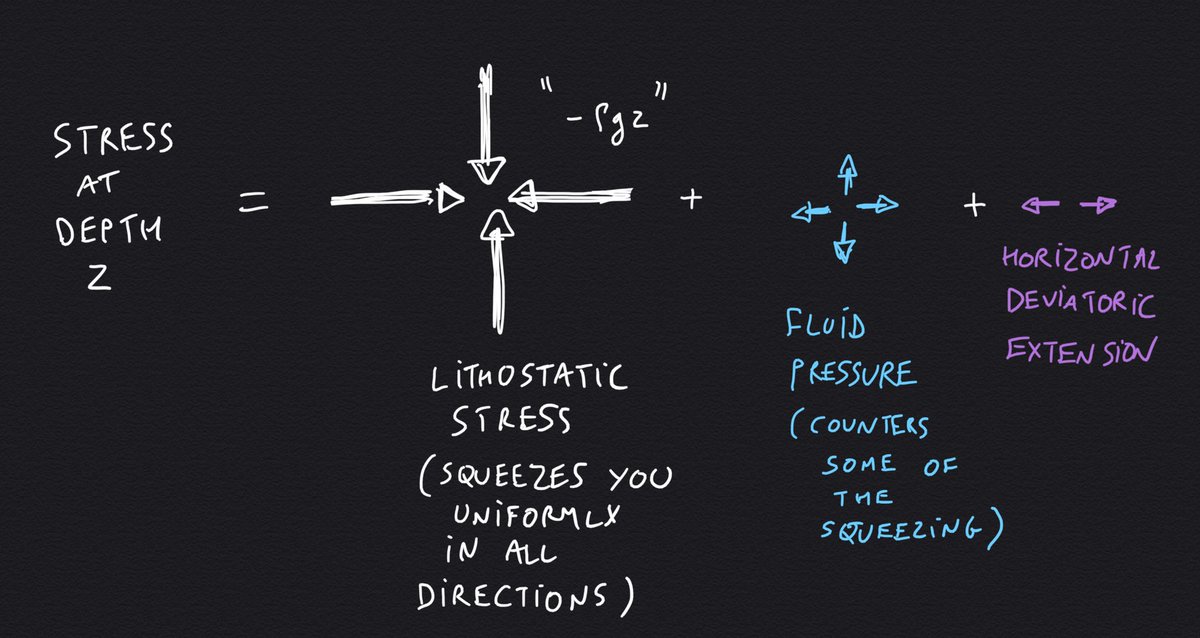 STRESS
AT
DEPTH
Z
=
"-ρgz"
+
+
LITHOSTATIC
STRESS
(SQUEEZES YOU
UNIFORMLY
IN ALL
DIRECTIONS)
FLUID
PRESSURE
(COUNTERS
SOME OF
THE
SQUEEZING)
HORIZONTAL
DEVIATORIC
EXTENSION